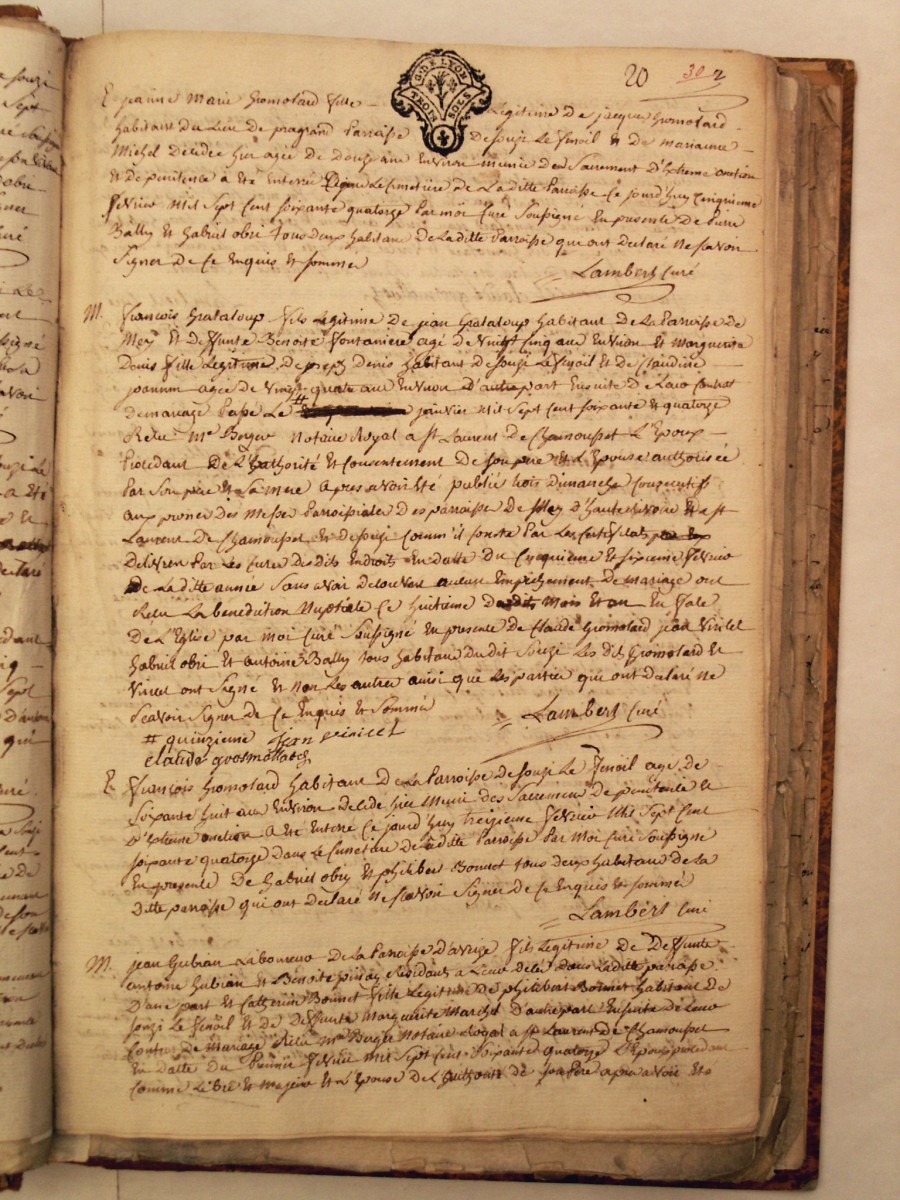 G. DE LYON
TROIS SOLS
20 30 2
E jeanne Marie Gromolard fille Legitime De jacque Gromolard
habitant du Lieu De pragrand Parroisse De souzi Le Fenoil et De Marianne
Michel décédée hier agée de Douze ans Environ munie des Sacrement D'Extreme onction
Et De penitence a Eté Enterée Le Cimetière De La ditte Parroisse Ce jourd'huy Cinquieme
Fevrier Mil Sept Cent soixante quatorze Par moi Curé soussigné En presence De Pierre
Bally Et Gabriel obri Tous deux habitans De La ditte Parroisse qui ont Declaré ne scavoir
Signer De Ce Enquis Et sommés
Lambert Curé
M. François Grataloup fils Legitime De jean Grataloup habitant De La Parroisse De
Mey Et Deffunte Benoite Fontaniere agé De Vingt Cinq ans Environ Et Marguerite
Denis fille Legitime De joseph Denis habitant De souzi Le Fenoil Et De Claudine
joannin agée de Vingt quatre ans Environ D'autre part Ensuite De Leur Contrat
De mariage Passé Le # janvier Mil Sept Cent soixante Et quatorze
Recu Me Berger Notaire Royal a St Laurent De Chamousset L'Epoux
Procedant De L'authorité Et Consentement De son pere Et L'Epouse authorisée
Par Son pere Et Sa mere apres avoir Eté publié trois Dimanche Consecutifs
aux prones Des Messes Parroissiales Des parroisse De Mey D'hauterivoire Et St
Laurent De Chamousset Et De souzi Comm'il Conste Par Les Certificats
Delivrés Par Les Curés Des dits Endroits En datte Du Cinquieme Et sixieme Fevrier
De La ditte année Sans avoir Decouvert aucun Empechement De mariage ont
Recu La benediction Nuptiale Ce huitieme Dudit Mois Et an En face
De L'Eglise par moi Curé soussigné En presence De Claude Gromolard jean Vincet
Gabriel obri Et antoine Bally tous habitans Du dit Souzi Les dits Gromolard Et
Vincet ont Signé Et Non Les autres ainsi que Les parties qui ont declaré ne
Scavoir Signer De Ce Enquis Et Sommés
Lambert Curé
# quinzieme jean vinicet
claude gromollard
E François Gromolard habitant De La Parroisse De souzi Le Fenoil agé De
Soixante huit ans Environ décédé hier Muni des Sacremens De penitence Et
D'Extreme onction a Eté Enterré Ce jourd'huy treizieme Fevrier Mil Sept Cent
soixante quatorze dans Le Cimetiere De La ditte Parroisse Par Moi Curé Soussigné
En presence De Gabriel obry Et philibert Bonnet tous deux habitans De La
Ditte parroisse qui ont Declaré ne scavoir Signer De Ce Enquis Et sommés
Lambert Curé
M. jean Gubian Laboureur De La Parroisse D'aveize fils Legitime De Deffunts
antoine Gubian Et Benoite pinay Residant a Lieu dans Ladite parroisse
D'une part Et Catherine Bonnet fille Legitime De philibert Bonnet habitant De
Souzi Le Fenoil Et De Deffunte Marguerite Marchet D'autre part Ensuite De Leur
Contrat De mariage Recu Me Berger Notaire Royal a St Laurent De Chamousset
En Datte Du Fevrier mil Sept Cent soixante quatorze L'Epoux procedant
Comme Libre Et Majeur Et L'Epouse De L'authorité De son Pere apres avoir Eté